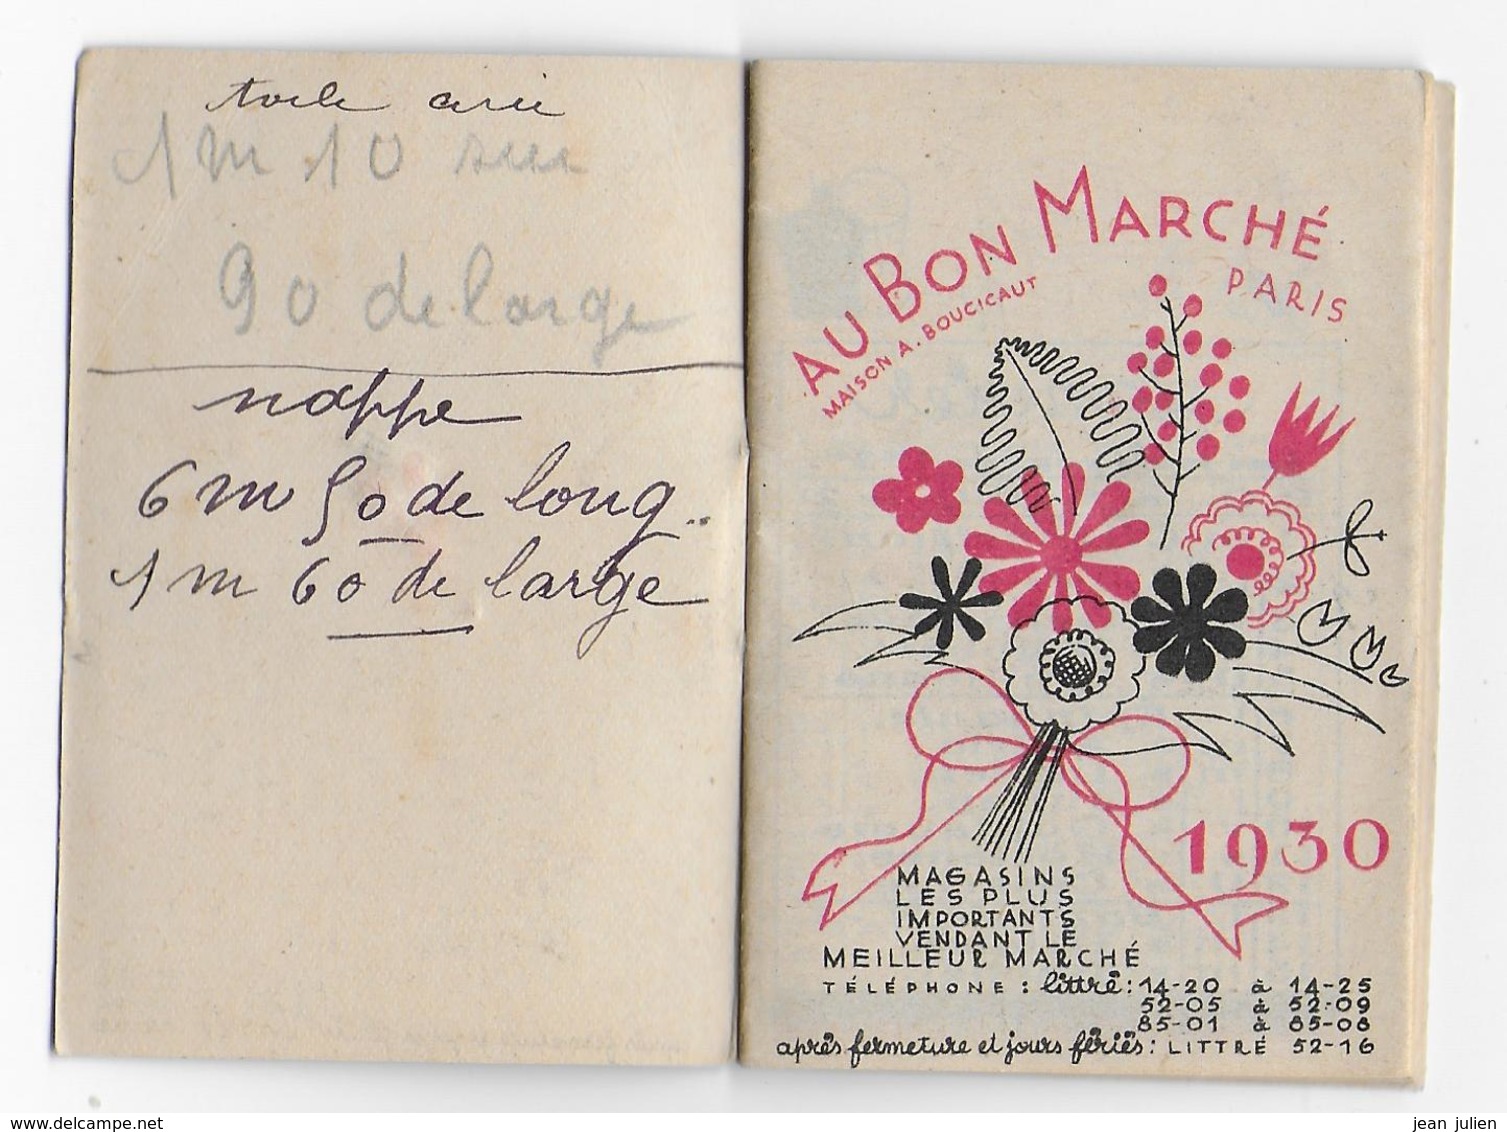 toile cirée
1m 10 sur
90 de large
nappe
6m 50 de long
1m 60 de large
AU BON MARCHÉ
MAISON A. BOUCICAUT
PARIS
1930
MAGASINS
LES PLUS
IMPORTANTS
VENDANT LE
MEILLEUR MARCHÉ
TÉLÉPHONE : littré : 14-20 à 14-25
52-05 à 52-09
85-01 à 85-08
après fermeture et jours fériés : LITTRÉ 52-16
www.delcampe.net
jean julien